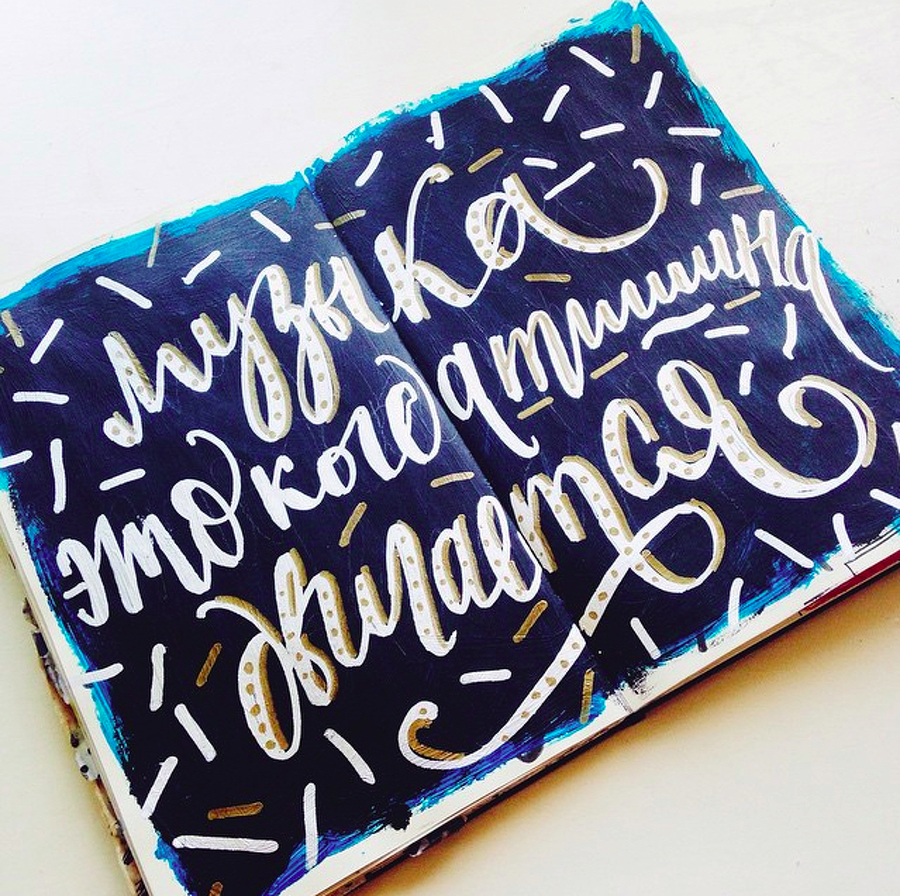 музыка
это когда тишина
двигается